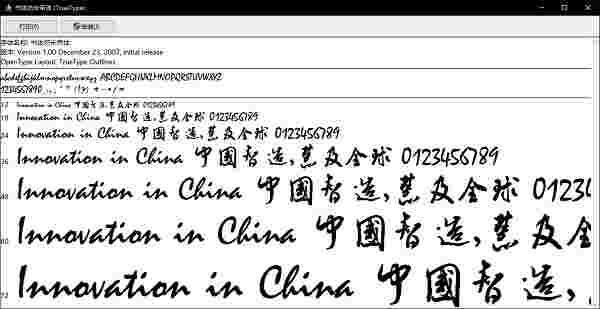 书体坊米芾体 (TrueType)
打印(P) 安装(I)
字体名称: 书体坊米芾体
版本: Version 1.00 December 23, 2007, initial release
OpenType Layout, TrueType Outlines
abcdefghijklmnopqrstuvwxyz ABCDEFGHIJKLMNOPQRSTUVWXYZ
12 Innovation in China 中國智造,慧及全球 0123456789
18 Innovation in China 中國智造,慧及全球 0123456789
24 Innovation in China 中國智造,慧及全球 0123456789
36 Innovation in China 中國智造,慧及全球 0123456789
48 Innovation in China 中國智造,慧及全球 0123
60 Innovation in China 中國智造,慧及全
72 Innovation in China 中國智造,